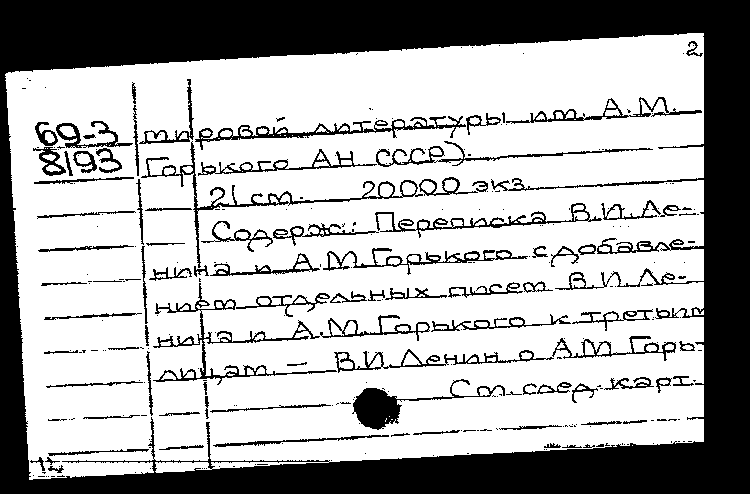 2
69-3
8193
мировой литературы им. А.М.
Горького АН СССР).
21 см. 20000 экз.
Содерж.: Переписка В.И. Ле-
нина и А.М. Горького с добавле-
нием отдельных писем В.И. Ле-
нина и А.М. Горького к третьим
лицам. — В.И. Ленин о А.М Горь-
См. след. карт.
12